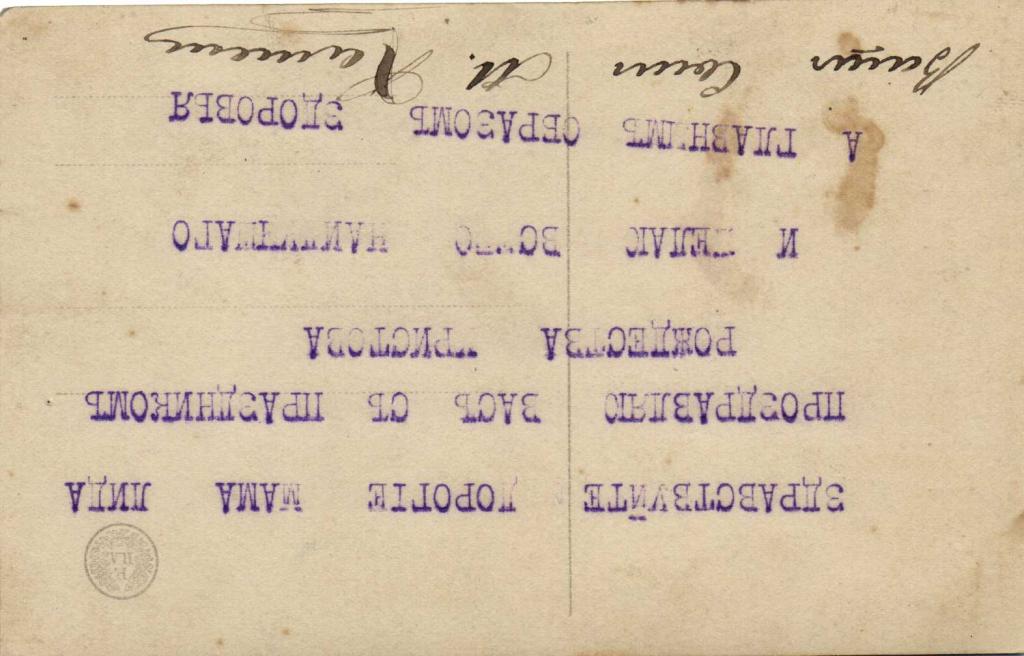 ЗДРАВСТВУЙТЕ ДОРОГІЕ МАМА ЛИДА
ПРОЗДРАВЛЯЮ ВАСЪ СЪ ПРАЗДНИКОМЪ
РОЖДЕСТВА ХРИСТОВА
И ЖЕЛАЮ ВСЕГО НАИЛУЧШАГО
А ГЛАВНЫМЪ ОБРАЗОМЪ ЗДОРОВЬЯ
Вашъ Сынъ М.